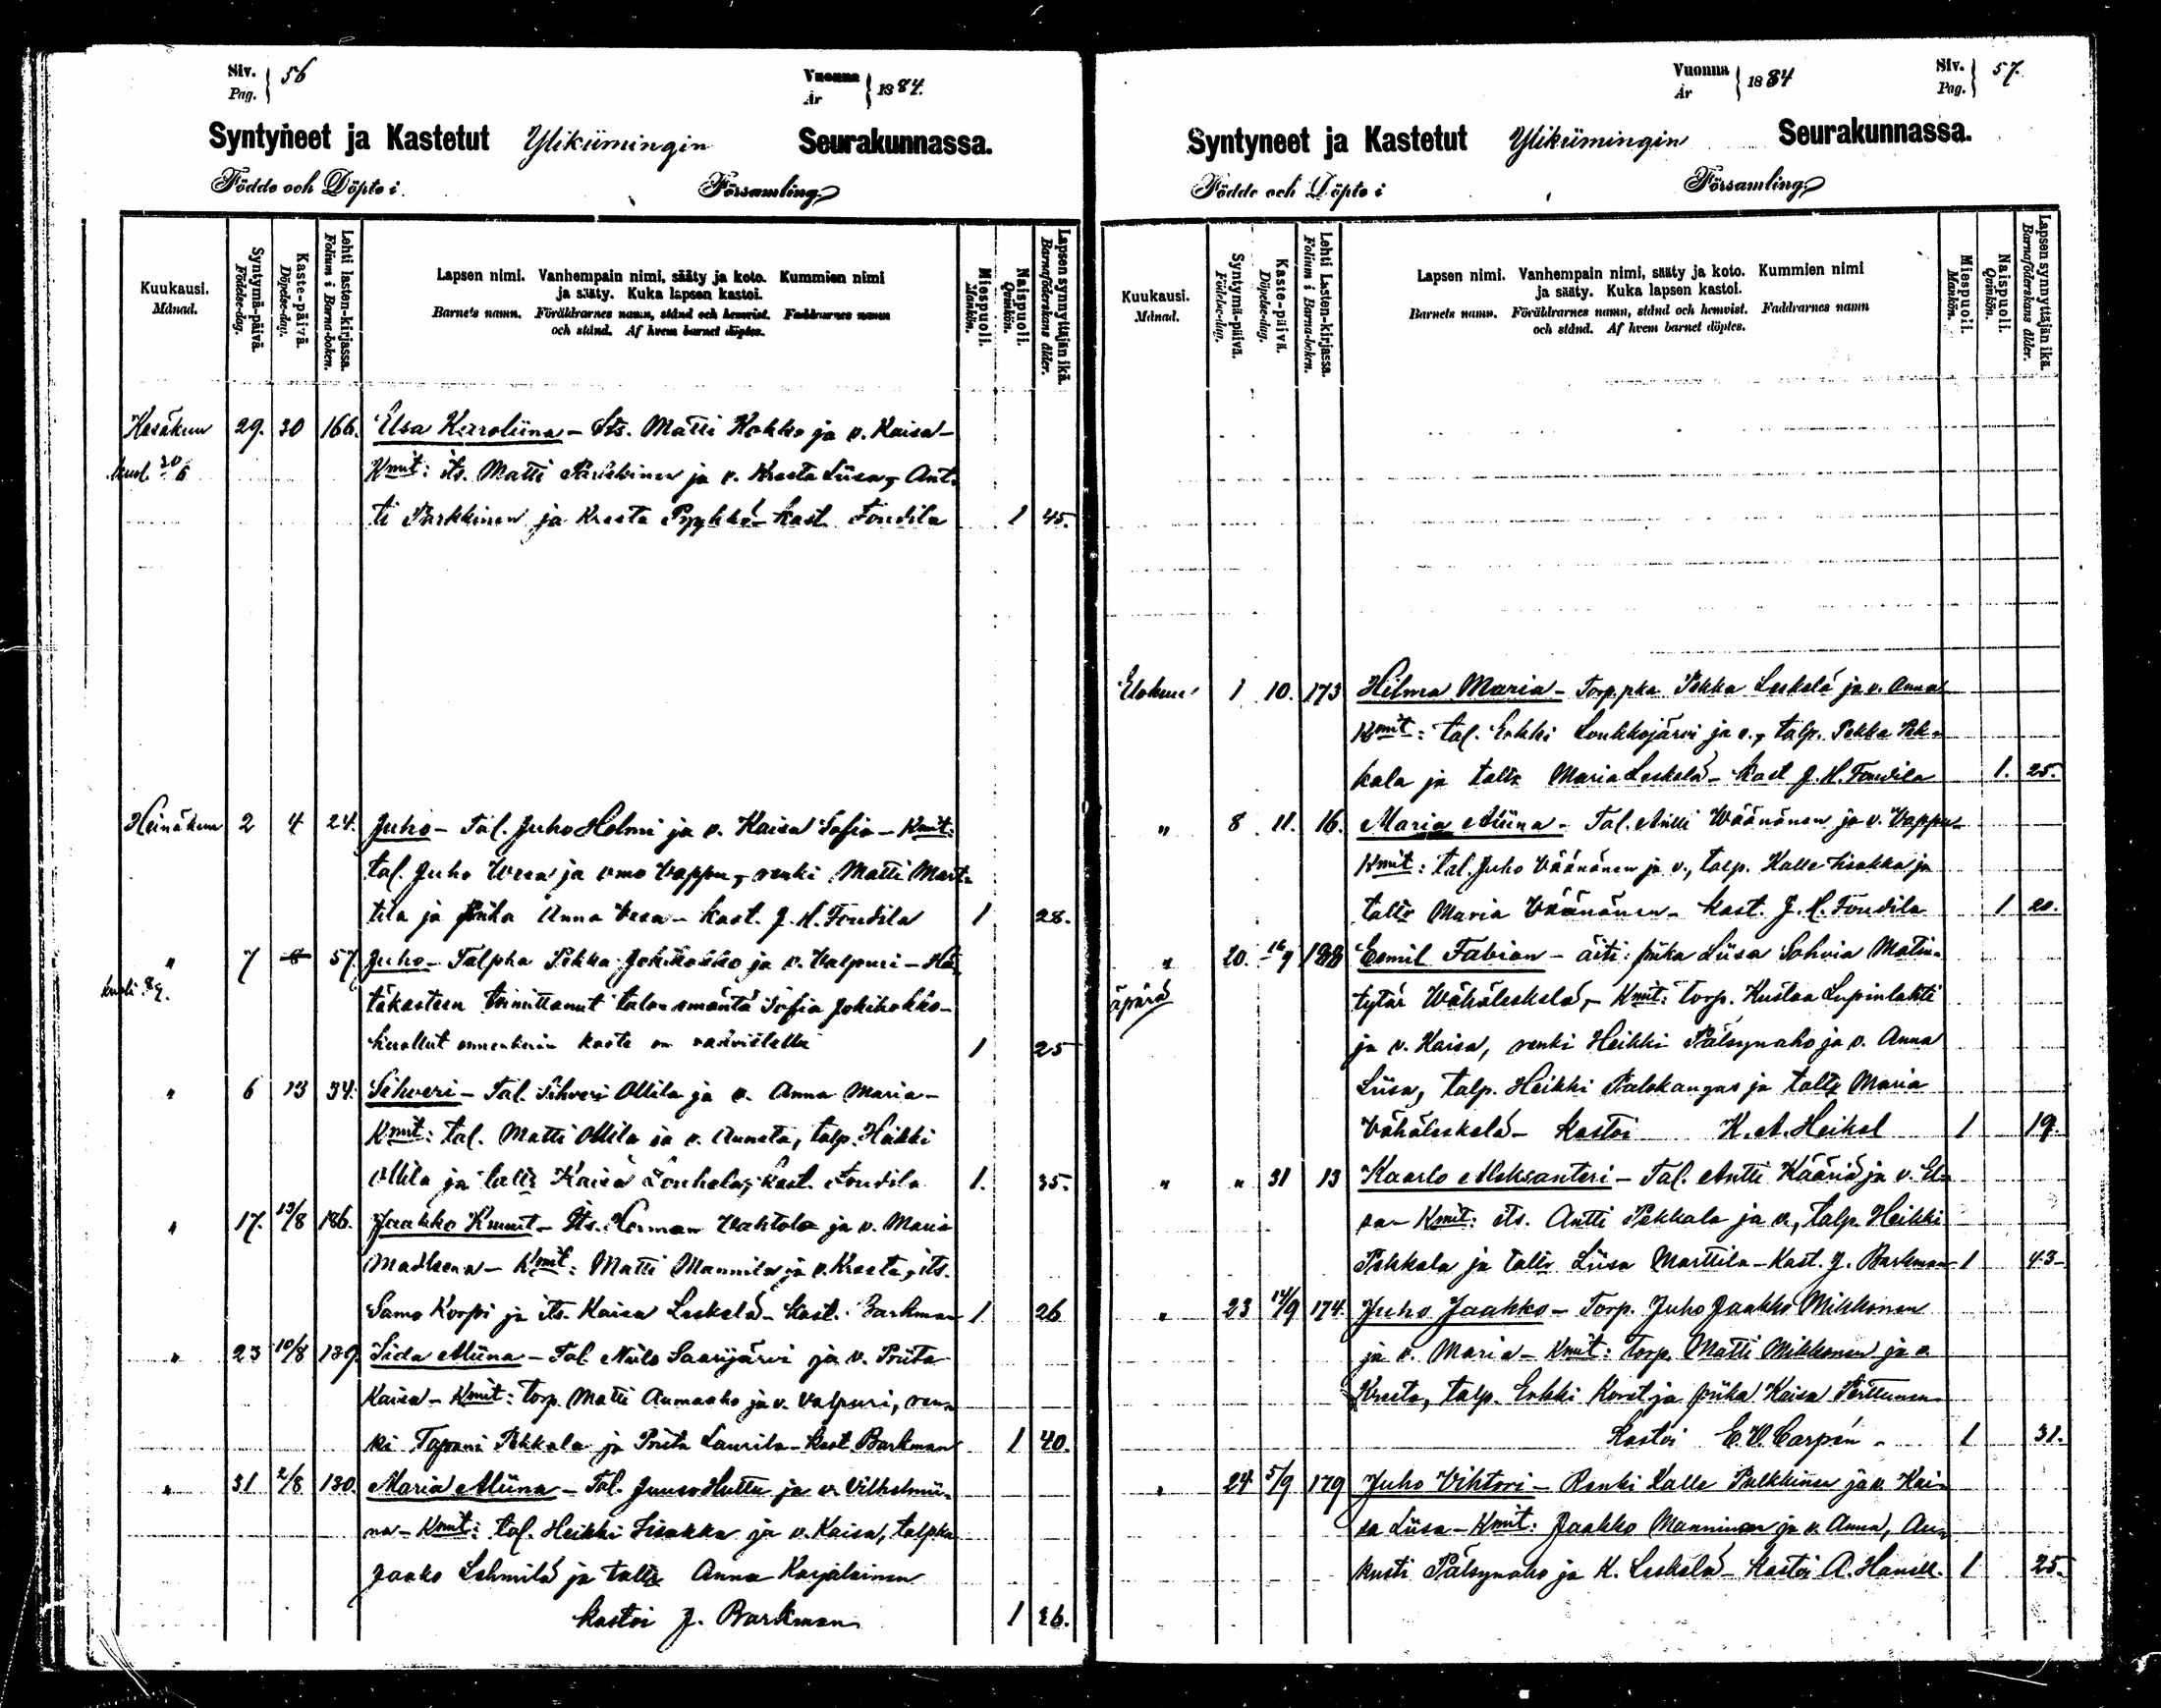 Siv. Pag. } 56
Vuonna År } 1884.
Syntyneet ja Kastetut Ylikiimingin Seurakunnassa.
Födde och Döpte i Församling
Kuukausi. Månad.
Syntymä-päivä. Födelse-dag.
Kaste-päivä. Döpelse-dag.
Lehti lasten-kirjassa. Folium i Barna-boken.
Lapsen nimi. Vanhempain nimi, sääty ja koto. Kummien nimi
ja sääty. Kuka lapsen kastoi.
Barnets namn. Föräldrarnes namn, stånd och hemvist. Faddrarnes namn
och stånd. Af hvem barnet döptes.
Miespuoli. Mankön.
Naispuoli. Qvinkön.
Lapsen synnyttäjän ikä. Barnaföderskans ålder.
Kesäkuu 29. 30 166. Elsa Karoliina - Its. Matti Kokko ja v. Kaisa -
kuol. 30/6 Kmit: its. Matti Parkkinen ja v. Kreeta Liisa, Ant-
ti Parkkinen ja Kreeta Pyykkö - kast. Fondila 1 45.
Heinäkuu 2 4 24. Juho - Tal. Juho Holmi ja v. Kaisa Sofia - Kmit:
tal. Juho Wesa ja vmo Vappu, renki Matti Mart-
tila ja piika Anna Vesa - kast. J. H. Fondila 1 28.
" 7 57. Juho - Talpka Pekka Jokikokko ja v. Valpuri - Hä-
täkasteen toimittanut talon emäntä Sofia Jokikokko -
kuollut ennenkuin kaste on vahvistettu 1 25
" 6 13 34. Sihveri - Tal. Sihveri Ollila ja v. Anna Maria -
Kmit: tal. Matti Ollila ja v. Anneta, talp. Heikki
Ollila ja taltr Kaisa Louhela, kast. Fondila 1. 35.
" 17. 13/8 186. Jaakko Kmmit - Its. Herman Vahtola ja v. Maria
Madleena - Kmit: Matti Mannila ja v. Kreeta, its.
Samo Korpi ja its. Kaisa Leskelä - kast. Barkman 1 26
" 23 10/8 139. Iida Aliina - Tal. Niilo Saarijärvi ja v. Priita
Kaisa - Kmit: torp. Matti Aumaaho ja v. Valpuri, ren-
ki Tapani Pekkala ja Priita Laurila - kast Barkman 1 40.
" 31 2/8 130. Maria Aliina - Tal. Juuso Huttu ja v. Vilhelmii-
na - Kmit: tal. Heikki Iisakka ja v. Kaisa, talpka
Jaako Lehmilä ja taltr Anna Karjalainen
kastoi J. Barkman 1 26.
Vuonna År } 1884
Siv. Pag. } 57.
Syntyneet ja Kastetut Ylikiimingin Seurakunnassa.
Födde och Döpte i Församling
Kuukausi. Månad.
Syntymä-päivä. Födelse-dag.
Kaste-päivä. Döpelse-dag.
Lehti Lasten-kirjassa. Folium i Barna-boken.
Lapsen nimi. Vanhempain nimi, sääty ja koto. Kummien nimi
ja sääty. Kuka lapsen kastoi.
Barnets namn. Föräldrarnes namn, stånd och hemvist. Faddrarnes namn
och stånd. Af hvem barnet döptes.
Miespuoli. Mankön.
Naispuoli. Qvinkön.
Lapsen synnyttäjän ikä. Barnaföderskans ålder.
Elokuu 1 10. 173 Hilma Maria - Torp.pka Pekka Leskelä ja v. Anna
Kmit: tal. Erkki Loukkojärvi ja v., talp. Pekka Pek-
kala ja taltr Maria Leskelä - kast J. H. Fondila 1. 25.
" 8 11. 16. Maria Aliina - Tal. Antti Väänänen ja v. Vappu
Kmit: tal. Juho Väänänen ja v., talp. Kalle Iisakka ja
taltr Maria Väänänen - kast. J. H. Fondila 1 20.
" 20. 16/9 188 Eemil Fabian - äiti: piika Liisa Sohvia Matin-
äpärä tytär Wähäleskelä, - Kmit: torp. Kustaa Lupinlahti
ja v. Kaisa, renki Heikki Pälsynaho ja v. Anna
Liisa, talp. Heikki Palokangas ja taltr Maria
Vähäleskelä - kastoi K. A. Heikel 1 19.
" " 31 13 Kaarlo Aleksanteri - Tal. Antti Kääriä ja v. El-
sa - Kmit: its. Antti Pekkala ja v., talp. Heikki
Pekkala ja taltr Liisa Marttila - Kast. J. Barkman 1 43-
" 23 14/9 174. Juho Jaakko - Torp. Juho Jaakko Mikkonen
ja v. Maria - Kmit: torp. Matti Mikkonen ja v.
Kreeta, talp. Erkki Korst ja piika Kaisa Perttunen
Kastoi E. W. Carpén - 1 31.
" 24 5/9 179 Juho Vihtori - Renki Kalle Pulkkinen ja v. Kai-
sa Liisa - Kmit: Jaakko Manninen ja v. Anna, Au-
kusti Pälsynaho ja K. Leskelä - kastoi A. Hanell. 1 25.